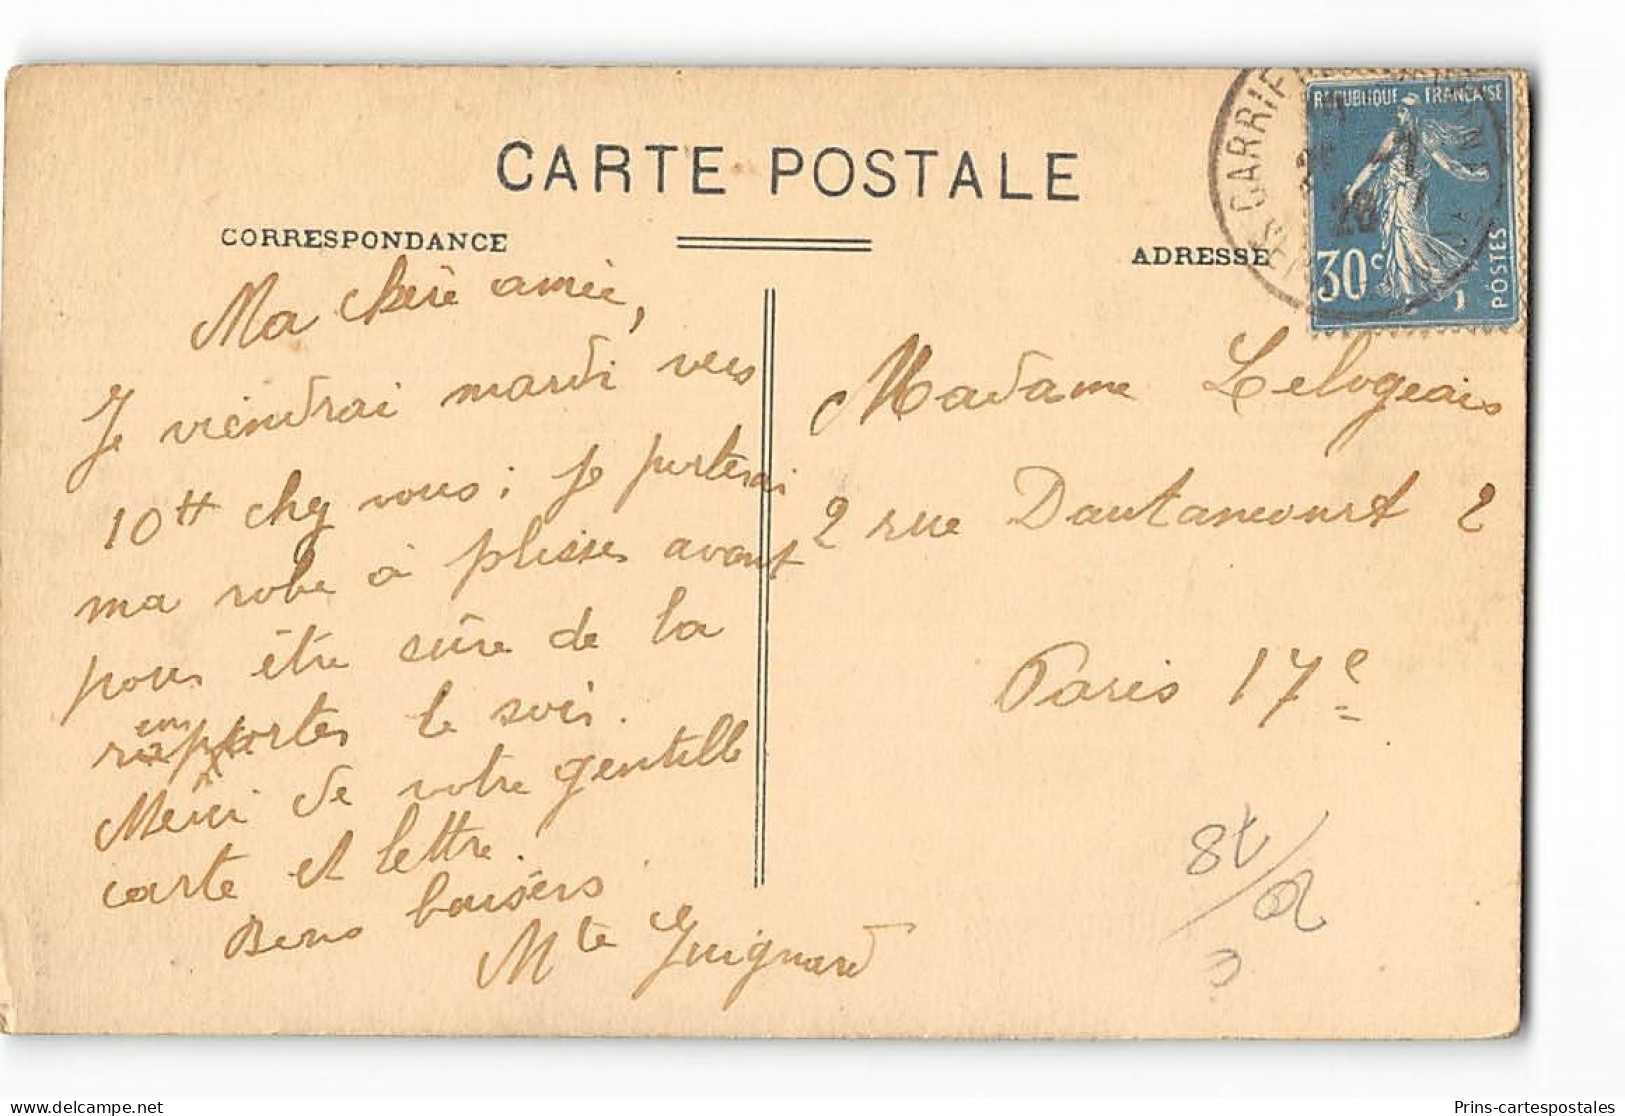 CARTE POSTALE
CORRESPONDANCE
ADRESSE
REPUBLIQUE FRANÇAISE
30c
POSTES
CARRIE
26
Ma chère amie,
Je viendrai mardi vers
10H chez vous ; je porterai
ma robe à plisser avant
pour être sûre de la
remporter le soir.
Merci de votre gentille
carte et lettre.
Bons baisers
Mte Guignard
Madame Lelogeais
2 rue Dautancourt 2
Paris 17e
8t
3
Prins-cartespostales